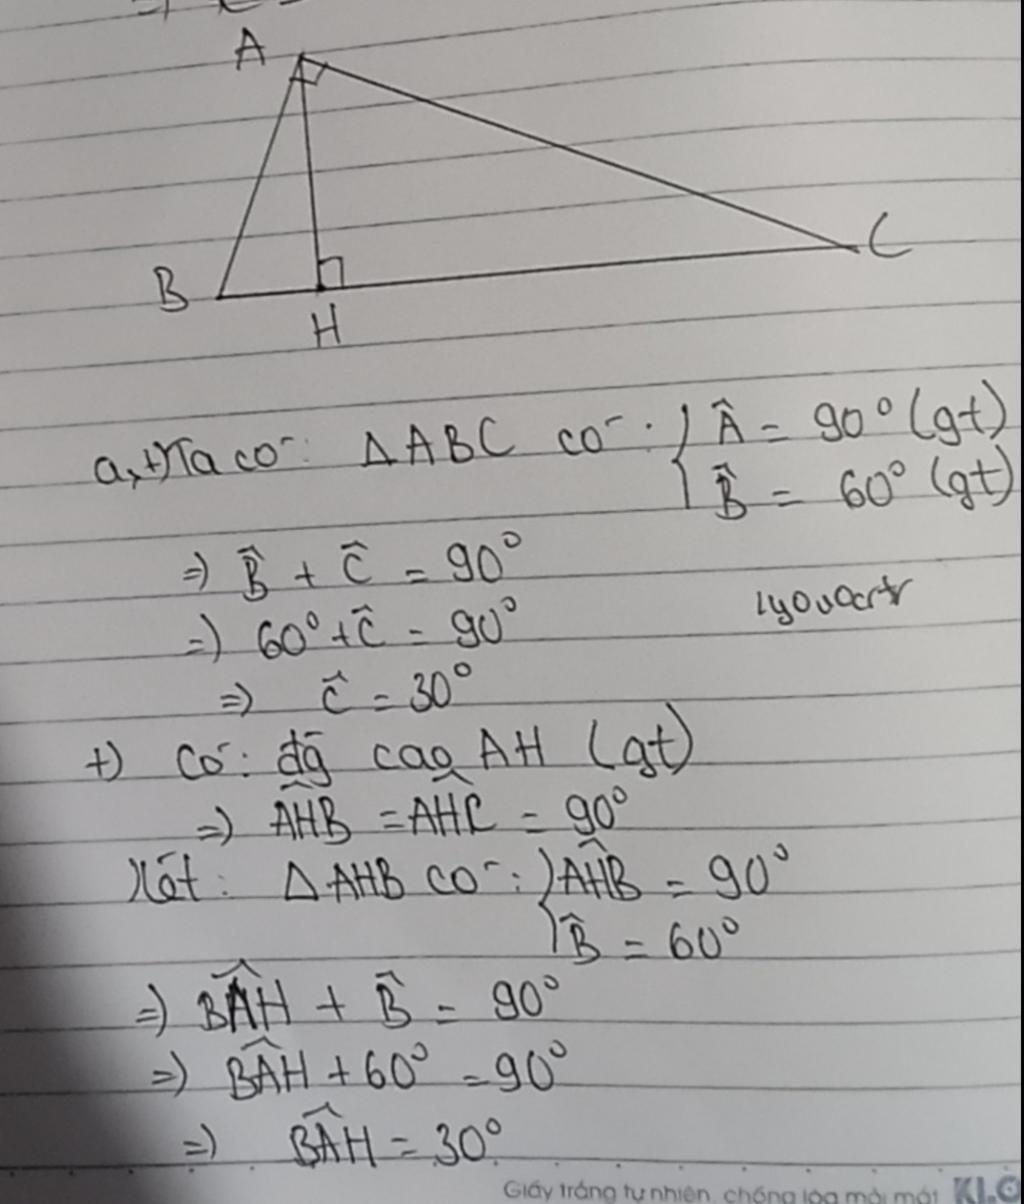 A
B
H
C
a, +) Ta có: ΔABC có: { Â = 90° (gt)
B̂ = 60° (gt)
=) B̂ + Ĉ = 90°
=) 60° + Ĉ = 90°
=) Ĉ = 30°
+) Có: đg cao AH (gt)
=) AHB = AHC = 90°
Xét: ΔAHB có: { AHB = 90°
B̂ = 60°
=) BAH + B̂ = 90°
=) BAH + 60° = 90°
=) BAH = 30°
Giấy trắng tự nhiên, chống lóa mỏi mắt